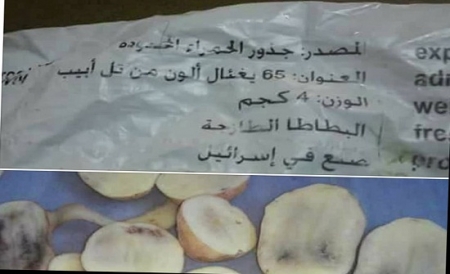 المصدر: جذور الحمراء المحدوده
العنوان: 65 يغئال ألون من تل أبيب
الوزن: 4 كجم
البطاطا الطازجة
صنع في إسرائيل
exp
adr
we
fre
pro